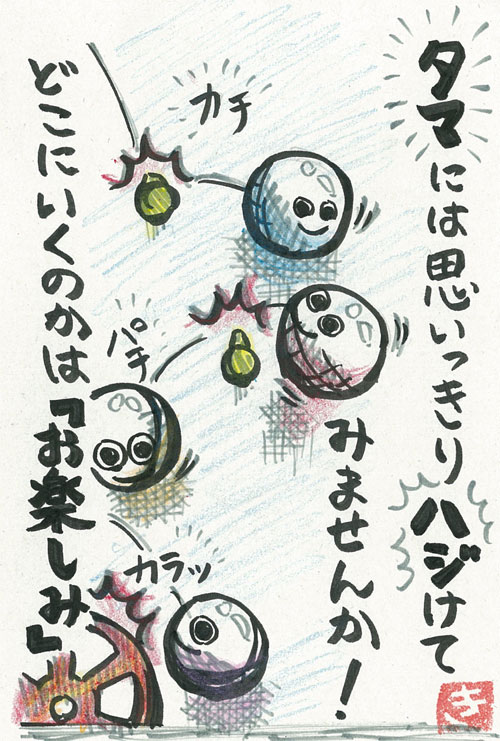 タマには思いっきりハジけて
みませんか!
どこにいくのかは『お楽しみ』
カチ
パチ
カラッ
き